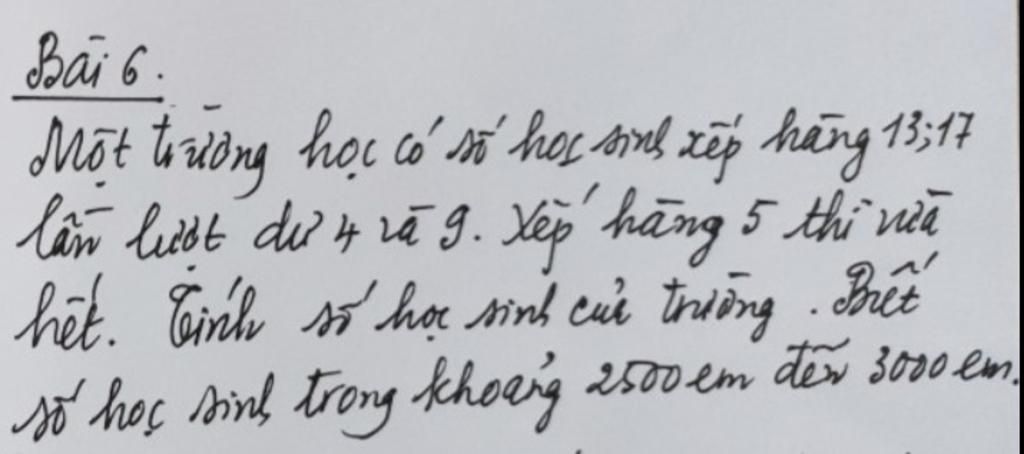 Bài 6.
Một trường học có số học sinh xếp hàng 13; 17
lần lượt dư 4 và 9. Xếp hàng 5 thì vừa
hết. Tính số học sinh của trường. Biết
số học sinh trong khoảng 2500 em đến 3000 em.